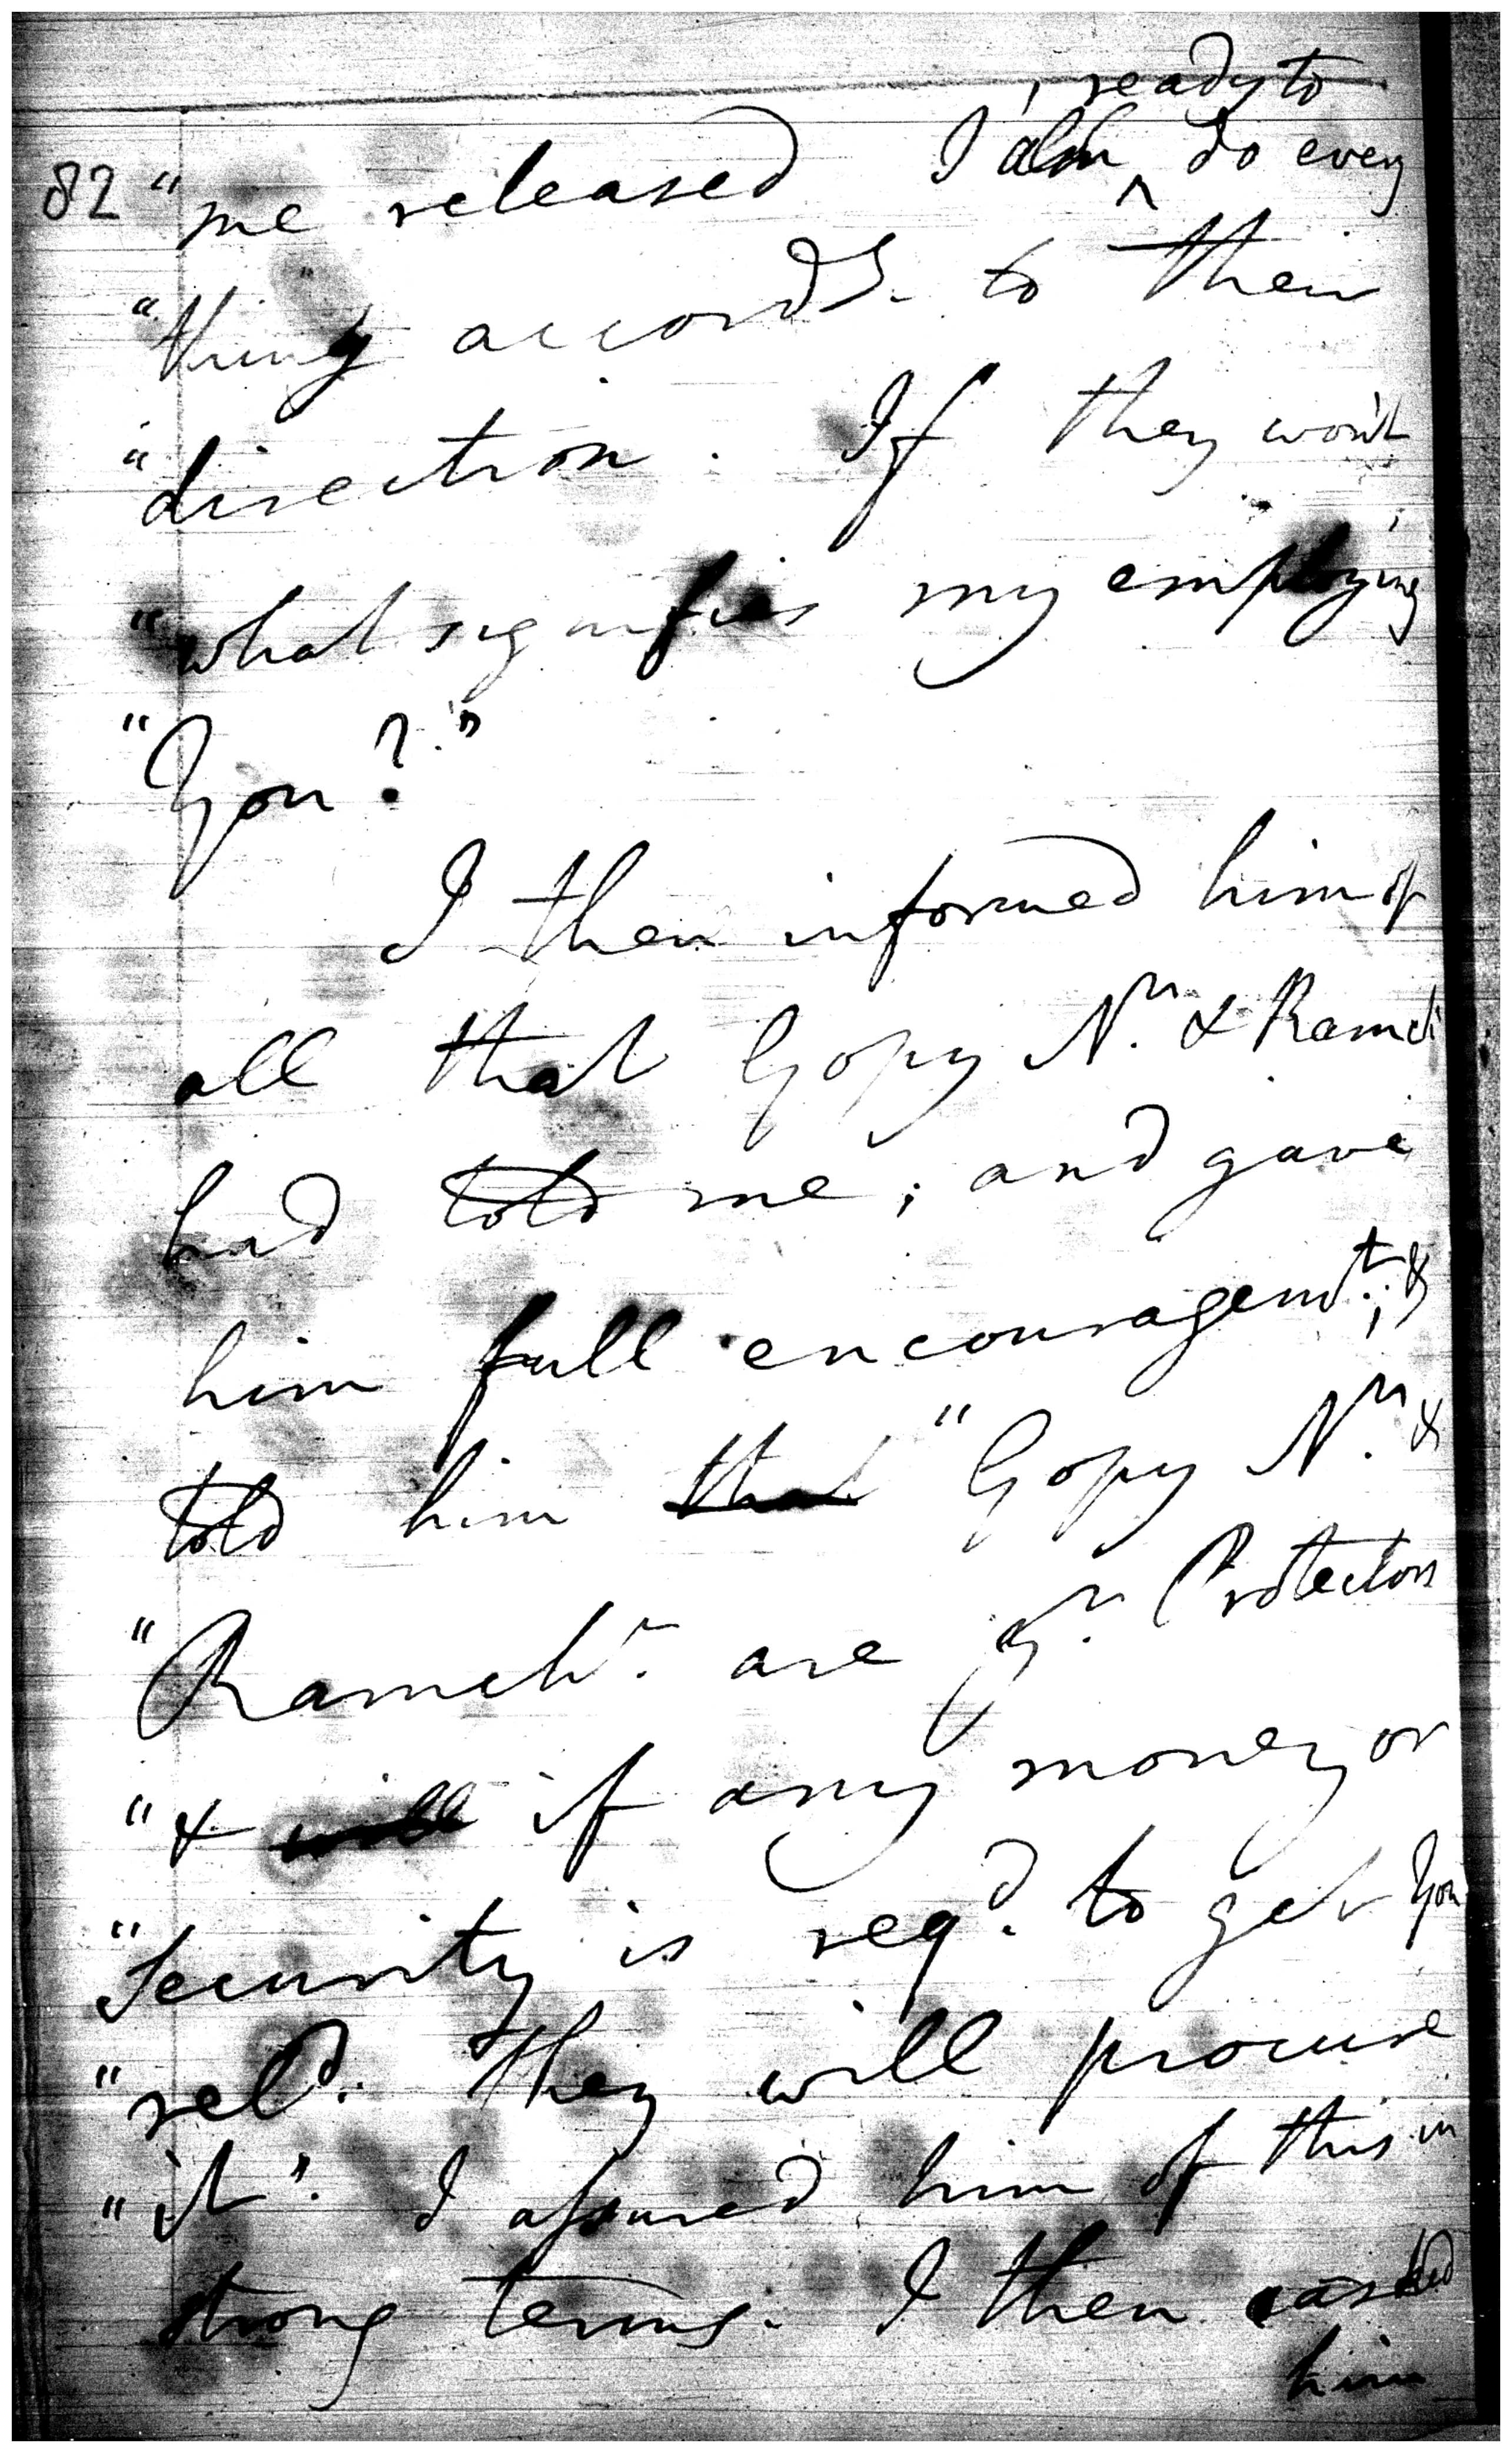 , ready to
82 "me released I am ^ do every
"thing accordg. to their
"direction. If they won't
"what signifies my employing
"You?"
I then informed him of
all that Gopy Nn. & Ramch
had told me; and gave
him full encouragemt.; &
told him that "Gopy Nn. &
"Ramchn. are yr. Protectors
"& will if any money or
"Security is reqd. to get You
"reld. they will procure
"it". I assured him of this in
strong terms. I then asked
him